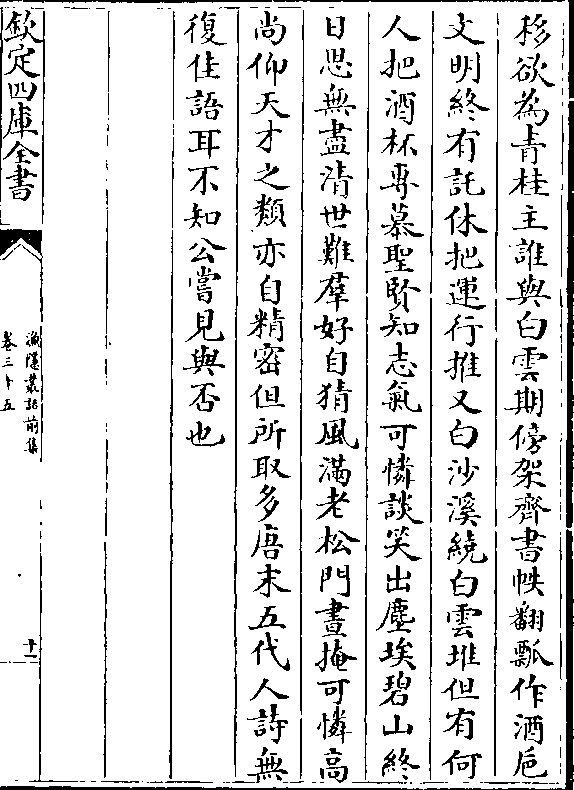 移欲為青桂主誰與白雲期傍架齊書帙翻瓢作酒巵
文明終有託休把運行推又白沙溪繞白雲堆但有何
人把酒杯專慕聖賢知志氣可憐談笑出塵埃碧山終
日思無盡清世難羣好自猜風滿老松門晝掩可憐高
尚仰天才之類亦自精密但所取多唐末五代人詩無
復佳語耳不知公嘗見與否也
欽定四庫全書
漁隱叢話前集
卷三十五
十一